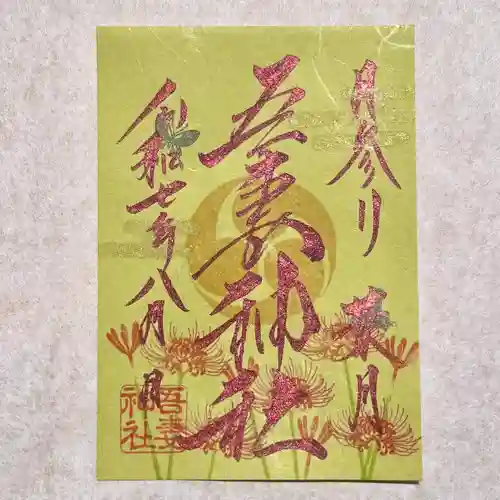 月参り
葉月
吾妻神社
令和七年八月
吾妻神社